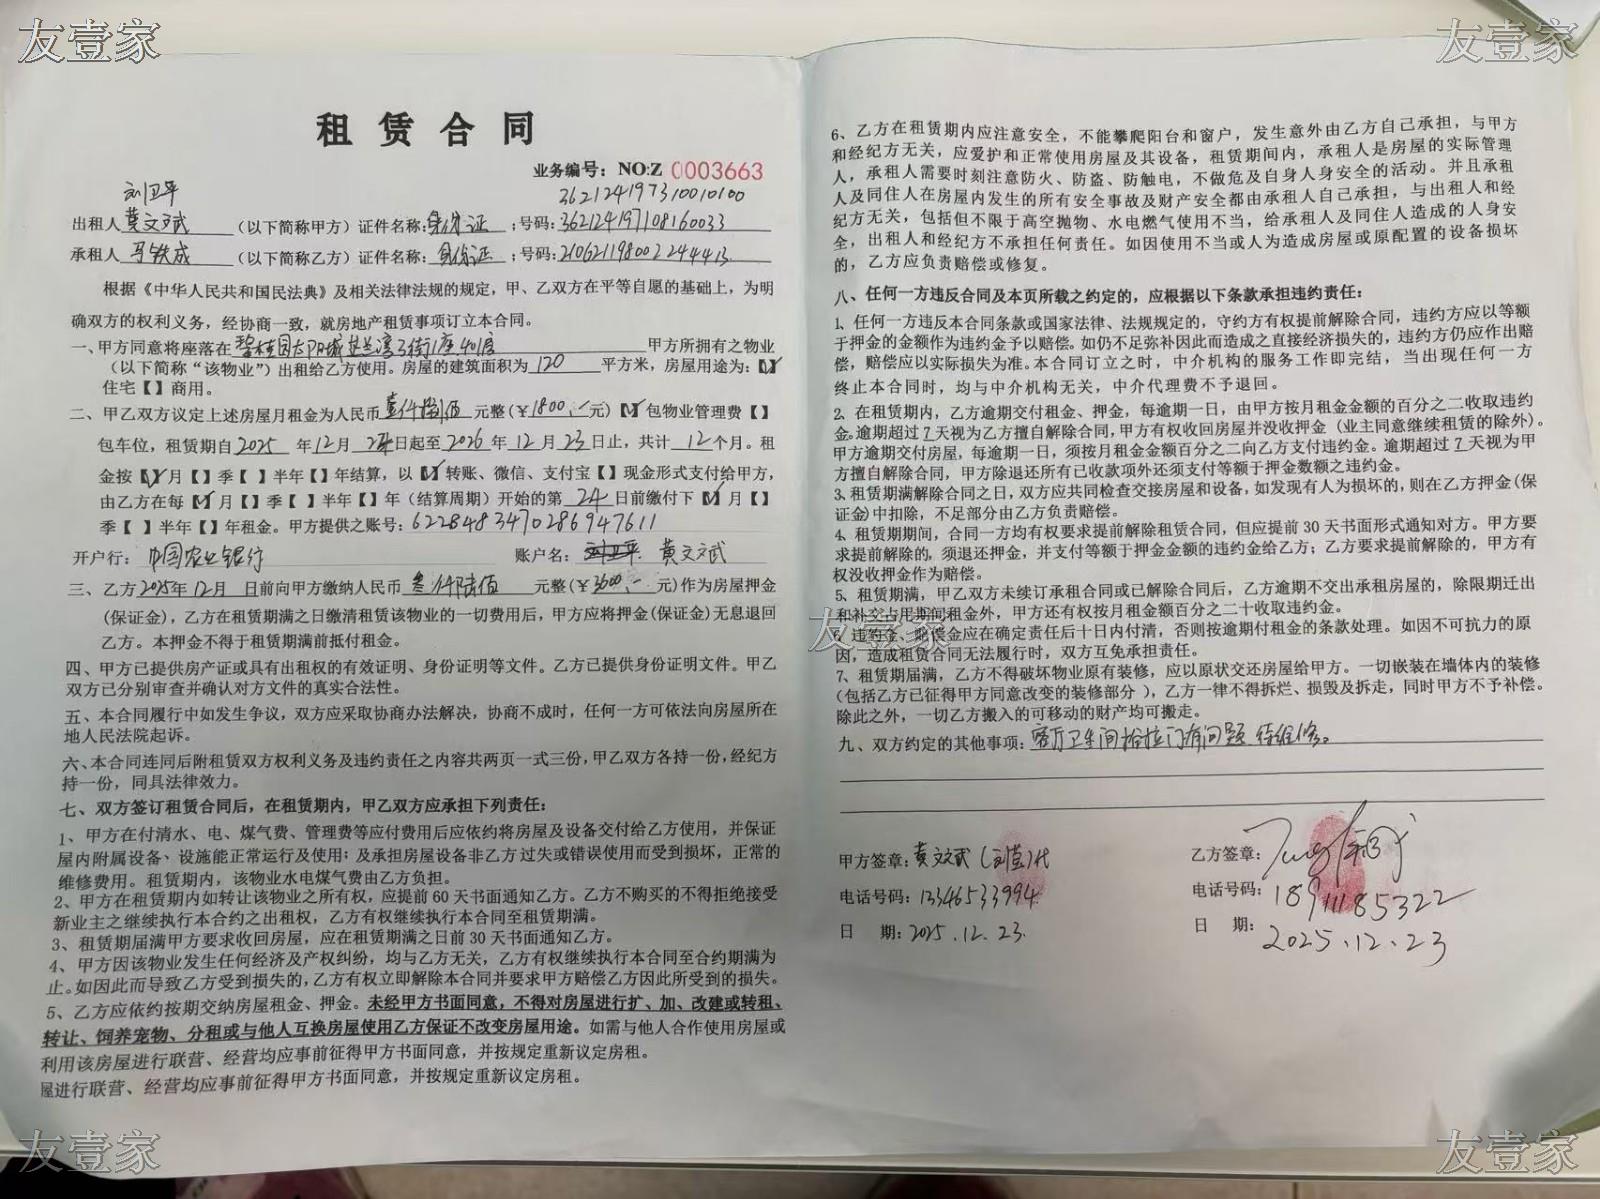 友壹家
友壹家
租赁合同
业务编号：NO:Z 0003663
刘卫平
362124197310010100
出租人黄文斌（以下简称甲方）证件名称:身份证；号码:362124197108160033
承租人马铁成（以下简称乙方）证件名称:身份证；号码:210621198002244413
根据《中华人民共和国民法典》及相关法律法规的规定，甲、乙双方在平等自愿的基础上，为明
确双方的权利义务，经协商一致，就房地产租赁事项订立本合同。
一、甲方同意将座落在碧桂园太阳城芷兰湾3街1座401房 甲方所拥有之物业
（以下简称“该物业”）出租给乙方使用。房屋的建筑面积为120平方米，房屋用途为：【√】
住宅【 】商用。
二、甲乙双方议定上述房屋月租金为人民币壹仟捌佰元整(￥1800.-元)【√】包物业管理费【 】
包车位，租赁期自2025年12月24日起至2026年12月23日止，共计12个月。租
金按【√】月【 】季【 】半年【 】年结算，以【√】转账、微信、支付宝【 】现金形式支付给甲方，
由乙方在每【√】月【 】季【 】半年【 】年（结算周期）开始的第24日前缴付下【√】月【 】
季【 】半年【 】年租金。甲方提供之账号：6228483470286947611
开户行：中国农业银行 账户名：刘卫平 黄文斌
三、乙方2025年12月 日前向甲方缴纳人民币叁仟陆佰元整(￥3600.-元)作为房屋押金
(保证金)，乙方在租赁期满之日缴清租赁该物业的一切费用后，甲方应将押金(保证金)无息退回
乙方。本押金不得于租赁期满前抵付租金。
四、甲方已提供房产证或具有出租权的有效证明、身份证明等文件。乙方已提供身份证明文件。甲乙
双方已分别审查并确认对方文件的真实合法性。
五、本合同履行中如发生争议，双方应采取协商办法解决，协商不成时，任何一方可依法向房屋所在
地人民法院起诉。
六、本合同连同后附租赁双方权利义务及违约责任之内容共两页一式三份，甲乙双方各持一份，经纪方
持一份，同具法律效力。
七、双方签订租赁合同后，在租赁期内，甲乙双方应承担下列责任：
1、甲方在付清水、电、煤气费、管理费等应付费用后应依约将房屋及设备交付给乙方使用，并保证
屋内附属设备、设施能正常运行及使用；及承担房屋设备非乙方过失或错误使用而受到损坏，正常的
维修费用。租赁期内，该物业水电煤气费由乙方负担。
2、甲方在租赁期内如转让该物业之所有权，应提前60天书面通知乙方。乙方不购买的不得拒绝接受
新业主之继续执行本合约之出租权，乙方有权继续执行本合同至租赁期满。
3、租赁期届满甲方要求收回房屋，应在租赁期满之日前30天书面通知乙方。
4、甲方因该物业发生任何经济及产权纠纷，均与乙方无关，乙方有权继续执行本合同至合约期满为
止。如因此而导致乙方受到损失的，乙方有权立即解除本合同并要求甲方赔偿乙方因此所受到的损失。
5、乙方应依约按期交纳房屋租金、押金。未经甲方书面同意，不得对房屋进行扩、加、改建或转租、
转让、饲养宠物、分租或与他人互换房屋使用乙方保证不改变房屋用途。如需与他人合作使用房屋或
利用该房屋进行联营、经营均应事前征得甲方书面同意，并按规定重新议定房租。
屋进行联营、经营均应事前征得甲方书面同意，并按规定重新议定房租。
6、乙方在租赁期内应注意安全，不能攀爬阳台和窗户，发生意外由乙方自己承担，与甲方
和经纪方无关，应爱护和正常使用房屋及其设备，租赁期间内，承租人是房屋的实际管理
人，承租人需要时刻注意防火、防盗、防触电，不做危及自身人身安全的活动。并且承租
人及同住人在房屋内发生的所有安全事故及财产安全都由承租人自己承担，与出租人和经
纪方无关，包括但不限于高空抛物、水电燃气使用不当，给承租人及同住人造成的人身安
全，出租人和经纪方不承担任何责任。如因使用不当或人为造成房屋或原配置的设备损坏
的，乙方应负责赔偿或修复。
八、任何一方违反合同及本页所载之约定的，应根据以下条款承担违约责任：
1、任何一方违反本合同条款或国家法律、法规规定的，守约方有权提前解除合同，违约方应以等额
于押金的金额作为违约金予以赔偿。如仍不足弥补因此而造成之直接经济损失的，违约方仍应作出赔
偿，赔偿应以实际损失为准。本合同订立之时，中介机构的服务工作即完结，当出现任何一方
终止本合同时，均与中介机构无关，中介代理费不予退回。
2、在租赁期内，乙方逾期交付租金、押金，每逾期一日，由甲方按月租金金额的百分之二收取违约
金。逾期超过7天视为乙方擅自解除合同，甲方有权收回房屋并没收押金（业主同意继续租赁的除外）。
甲方逾期交付房屋，每逾期一日，须按月租金金额百分之二向乙方支付违约金。逾期超过7天视为甲
方擅自解除合同，甲方除退还所有已收款项外还须支付等额于押金数额之违约金。
3、租赁期满解除合同之日，双方应共同检查交接房屋和设备，如发现有人为损坏的，则在乙方押金(保
证金)中扣除，不足部分由乙方负责赔偿。
4、租赁期期间，合同一方均有权要求提前解除租赁合同，但应提前30天书面形式通知对方。甲方要
求提前解除的，须退还押金，并支付等额于押金金额的违约金给乙方；乙方要求提前解除的，甲方有
权没收押金作为赔偿。
5、租赁期满，甲乙双方未续订承租合同或已解除合同后，乙方逾期不交出承租房屋的，除限期迁出
和补交占用期间租金外，甲方还有权按月租金额百分之二十收取违约金。
友壹家
6、违约金、赔偿金应在确定责任后十日内付清，否则按逾期付租金的条款处理。如因不可抗力的原
因，造成租赁合同无法履行时，双方互免承担责任。
7、租赁期届满，乙方不得破坏物业原有装修，应以原状交还房屋给甲方。一切嵌装在墙体内的装修
（包括乙方已征得甲方同意改变的装修部分），乙方一律不得拆烂、损毁及拆走，同时甲方不予补偿。
除此之外，一切乙方搬入的可移动的财产均可搬走。
九、双方约定的其他事项：客厅卫生间推拉门有问题，待维修。
甲方签章：黄文斌
电话号码：13346533994
日 期：2025.12.23.
乙方签章：
电话号码：18911185322
日 期：2025.12.23
友壹家
友壹家